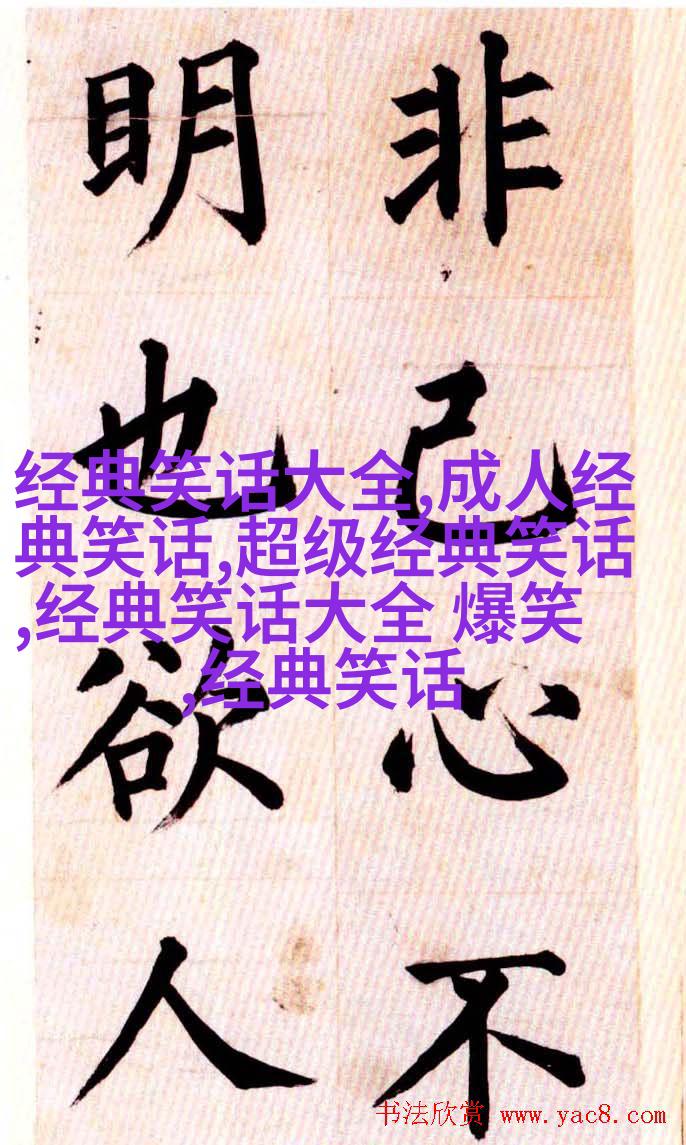 非己心不
明也欲人
经典笑话大全,成人经
典笑话,超级经典笑话
,经典笑话大全 爆笑
,经典笑话
书法欣赏 www.yac8.com